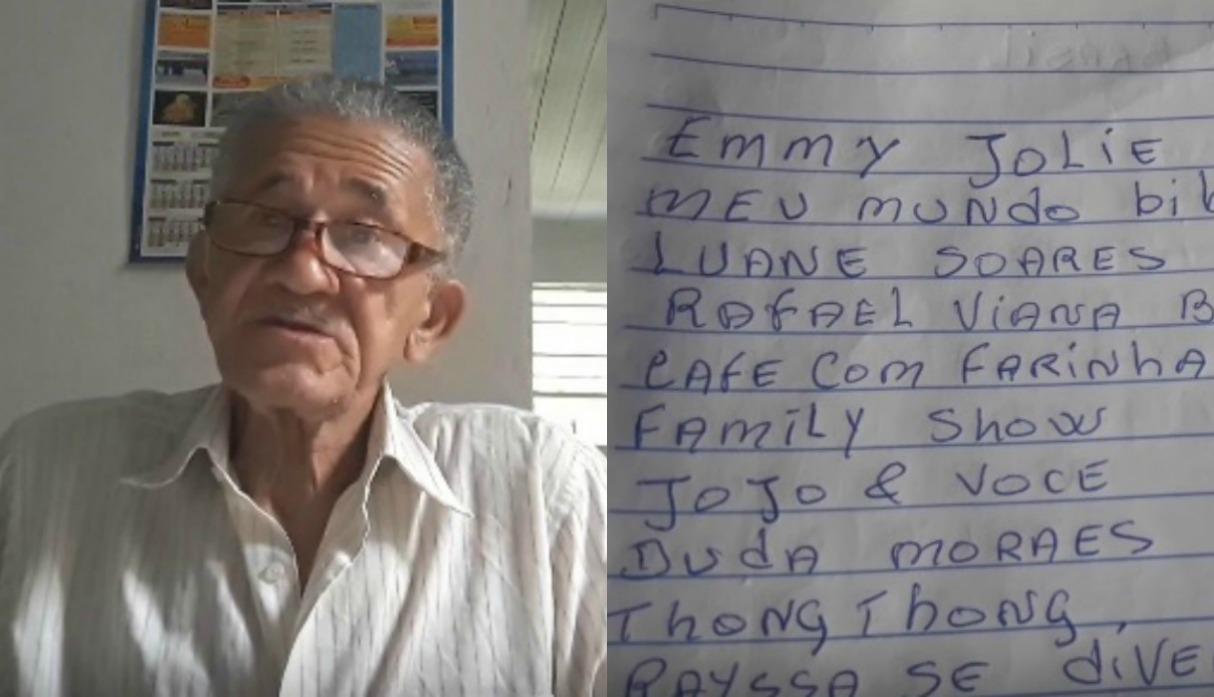 Emmy JOLiE
MEU MUNdo bil
LUANE SOARES
RAfAEL ViANA B
CAFE Com FARiNhA
FAMiLY Show
JoJo & VOCE
DudA MORAES
ThONG ThONG,
RAYSSA SE diVE